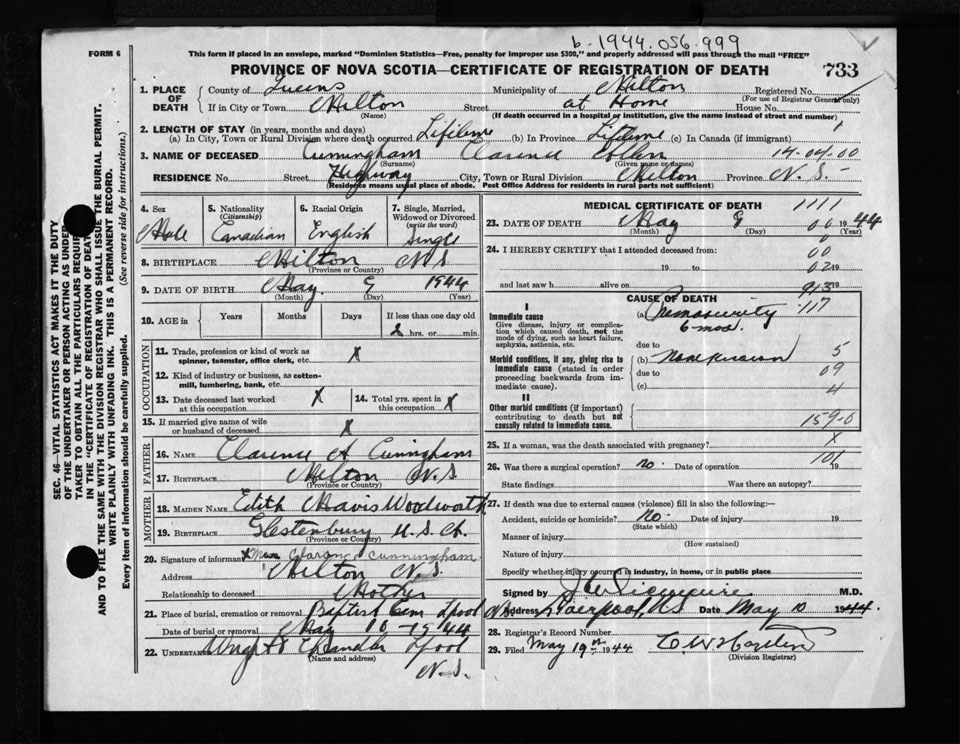 b. 1944.056.999
FORM 6
This form if placed in an envelope, marked "Dominion Statistics—Free, penalty for improper use $300," and properly addressed will pass through the mail "FREE"
PROVINCE OF NOVA SCOTIA—CERTIFICATE OF REGISTRATION OF DEATH 733
1. PLACE OF DEATH County of Queens Municipality of Milton Registered No.
(For use of Registrar General only)
If in City or Town Milton Street at Home House No.
(Name) (If death occurred in a hospital or institution, give the name instead of street and number)
2. LENGTH OF STAY (in years, months and days)
(a) In City, Town or Rural Division where death occurred Lifetime (b) In Province Lifetime (c) In Canada (if immigrant)
3. NAME OF DECEASED Cunningham Clarence 14-04-00
(Surname) (Given name or names)
RESIDENCE No. Street Highway City, Town or Rural Division Milton Province N.S.
(Residence means usual place of abode. Post Office Address for residents in rural parts not sufficient)
4. Sex Male
5. Nationality (Citizenship) Canadian
6. Racial Origin English
7. Single, Married, Widowed or Divorced (write the word) Single
8. BIRTHPLACE Milton N.S
(Province or Country)
9. DATE OF BIRTH May 9 1944
(Month) (Day) (Year)
10. AGE in Years Months Days If less than one day old
2 hrs. or min.
OCCUPATION
11. Trade, profession or kind of work as spinner, teamster, office clerk, etc. X
12. Kind of industry or business, as cotton-mill, lumbering, bank, etc.
13. Date deceased last worked at this occupation X
14. Total yrs. spent in this occupation X
15. If married give name of wife or husband of deceased X
FATHER
16. NAME Clarence A Cunningham
17. BIRTHPLACE Milton N.S
(Province or Country)
MOTHER
18. MAIDEN NAME Edith Mavis Woodworth
19. BIRTHPLACE Glestenbury U.S.A.
(Province or Country)
20. Signature of informant X Mrs Clarence Cunningham
Address Milton N.S.
Relationship to deceased Mother
21. Place of burial, cremation or removal Baptist Cem Lpool N.S.
Date of burial or removal May 10-1944
22. UNDERTAKER Wright Chandler Lpool
(Name and address)
N.S.
MEDICAL CERTIFICATE OF DEATH 1111
23. DATE OF DEATH May 9 00 1944
(Month) (Day) (Year)
24. I HEREBY CERTIFY that I attended deceased from: 00
19 to 02 19
and last saw h alive on 913 19
CAUSE OF DEATH 117
I
Immediate cause (a) Prematurity
6 mos.
Give disease, injury or complication which caused death, not the mode of dying, such as heart failure, asphyxia, asthenia, etc.
due to
Morbid conditions, if any, giving rise to immediate cause (stated in order proceeding backwards from immediate cause). (b) None known 5
due to 09
(c) 4
II
Other morbid conditions (if important) contributing to death but not causally related to immediate cause. 159-0
25. If a woman, was the death associated with pregnancy? X
101
26. Was there a surgical operation? no. Date of operation 19
State findings Was there an autopsy?
27. If death was due to external causes (violence) fill in also the following:
Accident, suicide or homicide? no. Date of injury 19
(State which)
Manner of injury
(How sustained)
Nature of injury
Specify whether injury occurred in industry, in home, or in public place
Signed by M.D.
Address Liverpool, NS Date May 10 1944.
28. Registrar's Record Number
29. Filed May 19th 1944 C. W. Harden
(Division Registrar)
SEC. 46—VITAL STATISTICS ACT MAKES IT THE DUTY
OF THE UNDERTAKER OR PERSON ACTING AS UNDER-
TAKER TO OBTAIN ALL THE PARTICULARS REQUIRED
IN THE "CERTIFICATE OF REGISTRATION OF DEATH"
AND TO FILE THE SAME WITH THE DIVISION REGISTRAR WHO SHALL ISSUE THE BURIAL PERMIT.
WRITE PLAINLY WITH UNFADING INK. THIS IS A PERMANENT RECORD.
Every item of information should be carefully supplied. (See reverse side for instructions.)